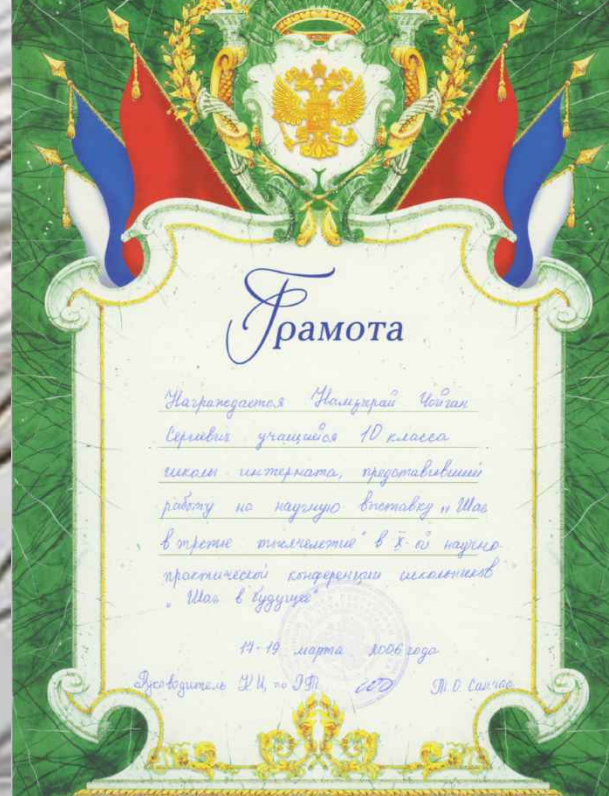 Грамота
Награждается Намчрай Чойган
Сергеевич учащийся 10 класса
школы интерната, представивший
работу на научную выставку „Шаг
в третье тысячелетие" в X-ой научно-
практической конференции школьников
„Шаг в будущее"
17-19 марта 2006 года
Руководитель